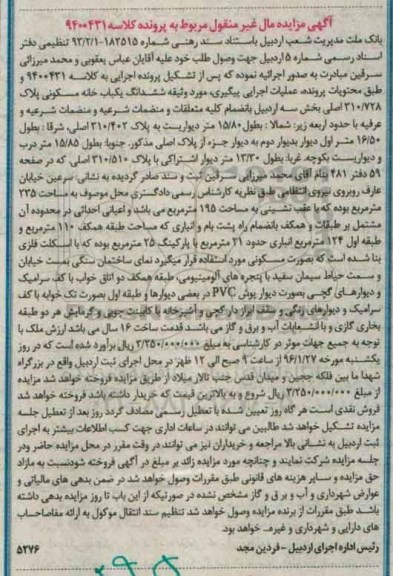 آگهی مزایده مال غیر منقول مربوط به پرونده کلاسه ۹۴۰۰۴۳۱
بانک ملت مدیریت شعب اردبیل باستناد سند رهنی شماره ۱۸۲۵۱۵-۹۳/۲/۱ تنظیمی دفتر
اسناد رسمی شماره ۵ اردبیل جهت وصول طلب خود علیه آقایان عباس یعقوبی و محمد میرزائی
سرقین مبادرت به صدور اجرائیه نموده که پس از تشکیل پرونده اجرایی به کلاسه ۹۴۰۰۴۳۱ و
طبق محتویات پرونده، عملیات اجرایی پیگیری، مورد وثیقه ششدانگ یکباب خانه مسکونی پلاک
۳۱۰/۷۲۸ اصلی بخش سه اردبیل بانضمام کلیه متعلقات و منضمات شرعیه و منضمات شرعیه و
عرفیه با حدود اربعه زیر: شمالا : بطول ۱۵/۸۰ متر دیواریست به پلاک ۳۱۰/۴۰۲ اصلی، شرقا : بطول
۱۶/۵۰ متر اول دیوار بدیوار دوم به دیوار جزء از پلاک اصلی مذکور، جنوبا: بطول ۱۵/۸۵ متر درب
و دیواریست بکوچه، غربا: بطول ۱۳/۳۰ متر دیوار اشتراکی با پلاک ۳۱۰/۵۱۰ اصلی، که در صفحه
۵۹ دفتر ۴۸۱ بنام آقای محمد میرزایی سرقین ثبت و سند صادر گردیده به نشانی سرعین خیابان
عارف روبروی نیروی انتظامی طبق نظریه کارشناس رسمی دادگستری محل موصوف به مساحت ۲۳۵
مترمربع بوده که با عقب نشینی به مساحت ۱۹۵ مترمربع می باشد و اعیانی احداثی در محدوده آن
مشتمل بر طبقات و همکف بانضمام راه پشت بام و انباری که مساحت طبقه همکف ۱۱۰ مترمربع و
طبقه اول ۱۲۴ مترمربع انباری حدود ۲۱ مترمربع با پارکینگ ۲۵ مترمربع بوده که با اسکلت فلزی
بنا شده است که بصورت مسکونی مورد استفاده قرار میگیرد نمای ساختمان سنگی بسمت خیابان
و سمت حیاط سیمان سفید با پنجره های آلومینیومی، طبقه همکف دو اتاق خواب با کف سرامیک
و دیوارهای گچی بصورت دیوار پوش PVC در بعضی دیوارها و طبقه اول بصورت تک خوابه با کف
سرامیک و دیوارهای رنگی و سقف ابزار دار گچی و آشپزخانه با کابینت چوبی و گرمایش هر دو طبقه
بخاری گازی و با انشعابات آب و برق و گاز می باشد قدمت ساخت ۱۶ سال می باشد ارزش ملک با
توجه به جمیع جهات موثر در کارشناسی به مبلغ ۳/۲۵۰/۰۰۰/۰۰۰ ریال برآورد شده است که در روز
یکشنبه مورخه ۹۶/۱/۲۷ از ساعت ۹ صبح الی ۱۲ ظهر در محل اجرای ثبت اردبیل واقع در بزرگراه
شهدا ما بین فلکه ججین و میدان قدس جنب تالار میلاد از طریق مزایده فروخته خواهد شد مزایده
از مبلغ ۳/۲۵۰/۰۰۰/۰۰۰ ریال شروع و به بالاترین قیمت که خریدار داشته باشد فروخته خواهد شد
فروش نقدی است هر گاه روز تعیین شده با تعطیل رسمی مصادف گردد روز بعد از تعطیل جلسه
مزایده تشکیل خواهد شد طالبین می توانند در ساعات اداری جهت کسب اطلاعات بیشتر به اجرای
ثبت اردبیل به نشانی بالا مراجعه و خریداران نیز می توانند در وقت مقرر در محل مزایده حاضر ودر
جلسه مزایده شرکت نمایند و چنانچه مورد مزایده زائد بر مبلغ در آگهی فروخته شودنسبت به مازاد
حق مزایده و سایر هزینه های قانونی طبق مقررات وصول خواهد شد در ضمن بدهی های مالیاتی و
عوارض شهرداری و آب و برق و گاز مشخص نشده در صورتیکه از این باب تا روز مزایده بدهی داشته
باشد طبق مقررات از برنده مزایده وصول خواهد شد تنظیم سند انتقال موکول به ارائه مفاصاحساب
های دارایی و شهرداری و غیره... خواهد بود.
رئیس اداره اجرای اردبیل - فردین مجد ۵۲۷۶